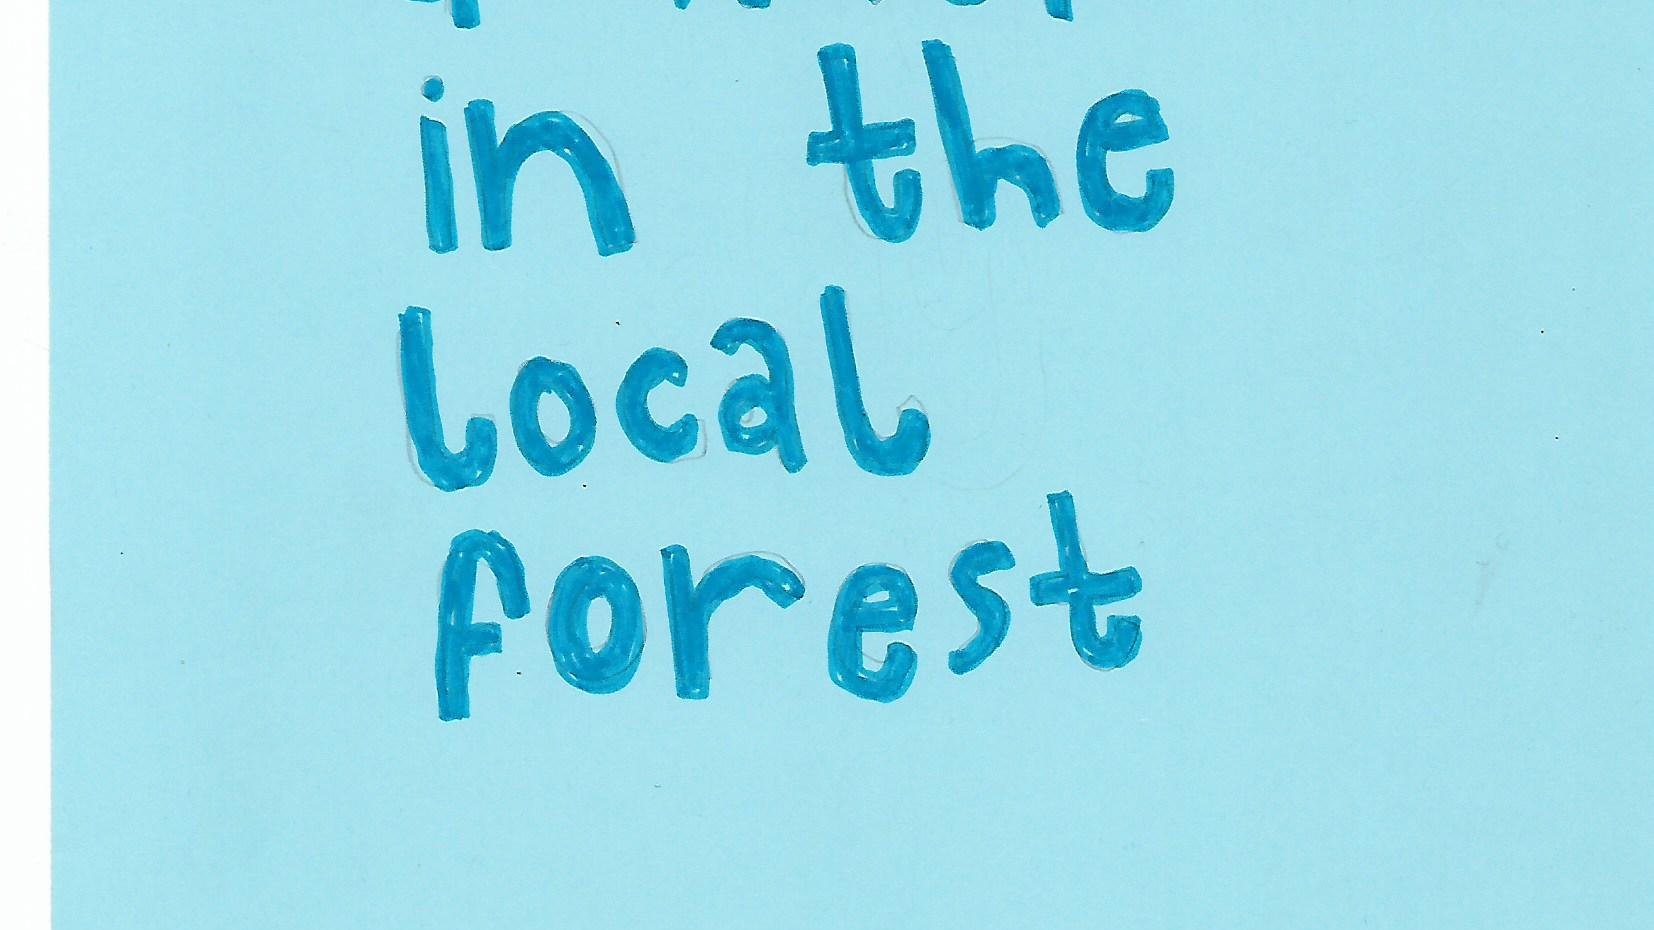 in the
local
forest